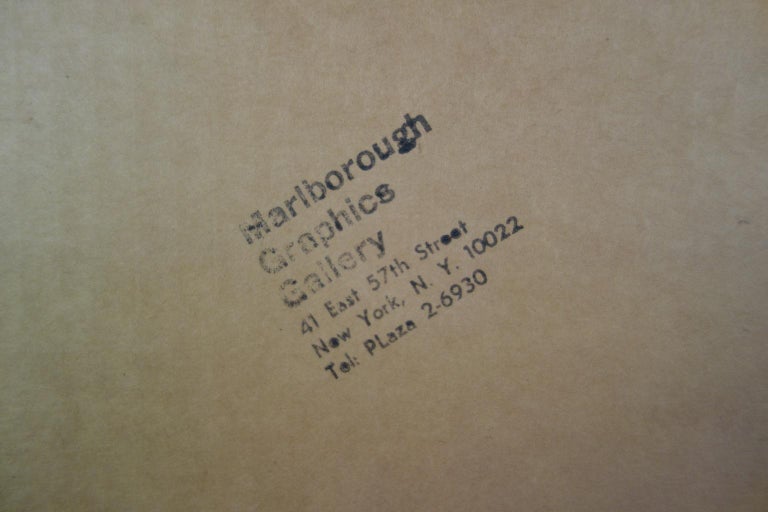 Marlborough
Graphics
Gallery
41 East 57th Street
New York, N. Y. 10022
Tel: PLaza 2-6930